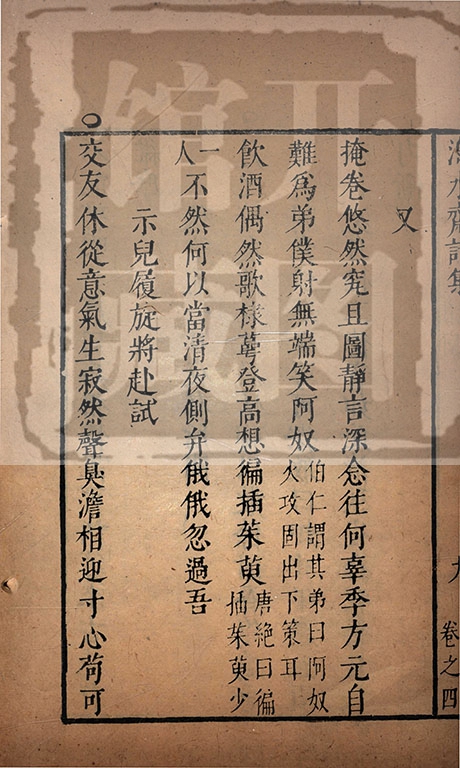 水齋詩集 卷之四
又
掩卷悠然究且圖靜言深念往何辜季方元自
難爲弟僕射無端笑阿奴伯仁謂其弟曰阿奴火攻固出下策耳
飲酒偶然歌棣萼登高想徧插茱萸唐絶曰徧插茱萸少
一人不然何以當清夜側弁俄俄忽過吾
示兒履旋將赴試
○交友休從意氣生寂然聲臭澹相迎寸心苟可
开图
馆藏